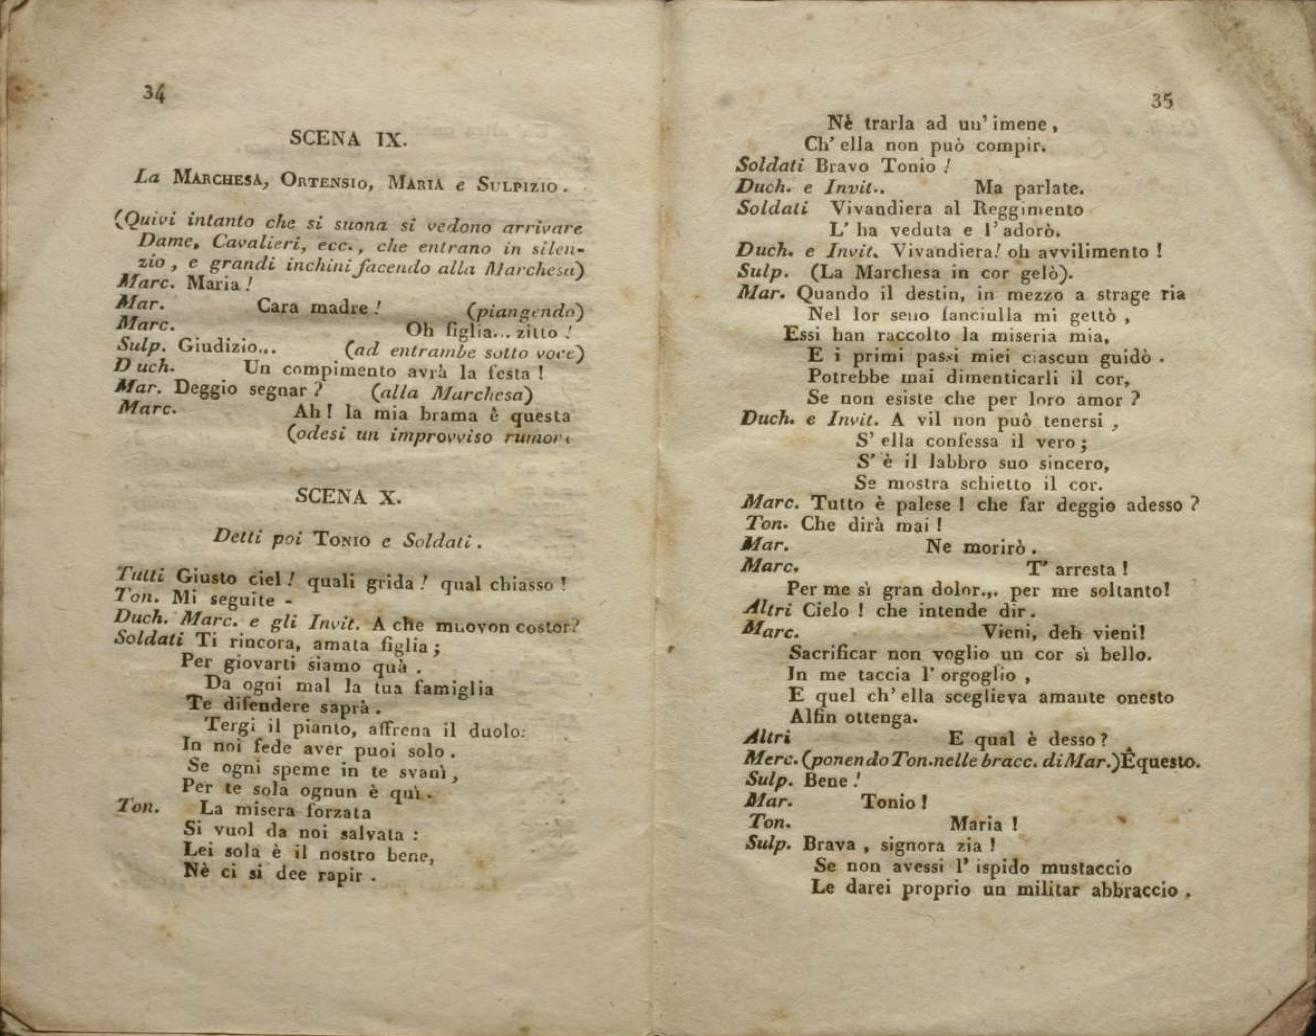 34
SCENA IX.
La MARCHESA, ORTENSIO, MARIA e SULPIZIO.
(Quivi intanto che si suona si vedono arrivare
Dame, Cavalieri, ecc., che entrano in silen-
zio, e grandi inchini facendo alla Marchesa)
Marc. Maria!
Mar. Cara madre! (piangendo)
Marc. Oh figlia... zitto!
Sulp. Giudizio... (ad entrambe sotto voce)
Duch. Un compimento avrà la festa!
Mar. Deggio segnar? (alla Marchesa)
Marc. Ah! la mia brama è questa
(odesi un improvviso rumor
SCENA X.
Detti poi TONIO e Soldati.
Tutti Giusto ciel! quali grida! qual chiasso!
Ton. Mi seguite -
Duch. Marc. e gli Invit. A che muovon costor?
Soldati Ti rincora, amata figlia;
Per giovarti siamo quà.
Da ogni mal la tua famiglia
Te difendere saprà.
Tergi il pianto, affrena il duolo:
In noi fede aver puoi solo.
Se ogni speme in te svanì,
Per te sola ognun è quì.
Ton. La misera forzata
Si vuol da noi salvata:
Lei sola è il nostro bene,
Nè ci si dee rapir.
35
Nè trarla ad uu' imene,
Ch' ella non può compir.
Soldati Bravo Tonio!
Duch. e Invit.. Ma parlate.
Soldati Vivandiera al Reggimento
L' ha veduta e l' adorò.
Duch. e Invit. Vivandiera! oh avvilimento!
Sulp. (La Marchesa in cor gelò).
Mar. Quando il destin, in mezzo a strage ria
Nel lor seno fanciulla mi gettò,
Essi han raccolto la miseria mia,
E i primi passi miei ciascun guidò.
Potrebbe mai dimenticarli il cor,
Se non esiste che per loro amor?
Duch. e Invit. A vil non può tenersi,
S' ella confessa il vero;
S' è il labbro suo sincero,
Se mostra schietto il cor.
Marc. Tutto è palese! che far deggio adesso?
Ton. Che dirà mai!
Mar. Ne morirò.
Marc. T' arresta!
Per me sì gran dolor... per me soltanto!
Altri Cielo! che intende dir.
Marc. Vieni, deh vieni!
Sacrificar non voglio un cor sì bello.
In me taccia l' orgoglio,
E quel ch' ella sceglieva amante onesto
Alfin ottenga.
Altri E qual è desso?
Merc. (ponendo Ton. nelle bracc. di Mar.) È questo.
Sulp. Bene!
Mar. Tonio!
Ton. Maria!
Sulp. Brava, signora zia!
Se non avessi l' ispido mustaccio
Le darei proprio un militar abbraccio.